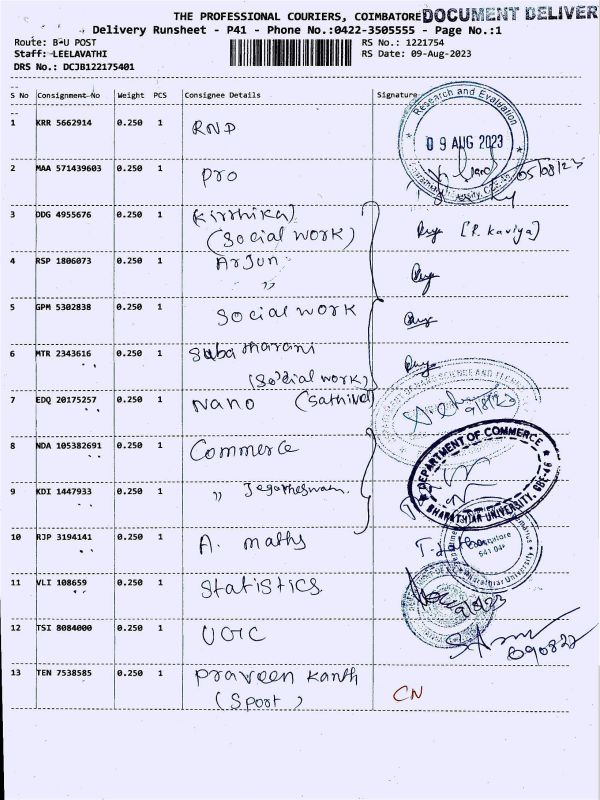 THE PROFESSIONAL COURIERS, COIMBATORE DOCUMENT DELIVER
Delivery Runsheet - P41 - Phone No.:0422-3505555 - Page No.:1
Route: B-U POST RS No.: 1221754
Staff: LEELAVATHI RS Date: 09-Aug-2023
DRS No.: DCJB122175401
S No Consignment No Weight PCS Consignee Details Signature
1 KRR 5662914 0.250 1 RND
Research and Evaluation
09 AUG 2023
2 MAA 571439603 0.250 1 PRO 05/08/23
3 DDG 4955676 0.250 1 (Kirthika)
(Social work) [P. Kaviya]
4 RSP 1806073 0.250 1 Arjun
"
5 GPM 5302838 0.250 1 Social work
6 MTR 2343616 0.250 1 Suba
(Social work)
7 EDQ 20175257 0.250 1 Nano 9/8/23
8 NDA 105382691 0.250 1 Commerce
DEPARTMENT OF COMMERCE
BHARATHIAR UNIVERSITY, CBE-46
9 KDI 1447933 0.250 1 "
10 RJP 3194141 0.250 1 A. maths
Bharathiar University
11 VLI 108659 0.250 1 Statistics 9/8/23
12 TSI 8084000 0.250 1 UGC
13 TEN 7538585 0.250 1 Praveen Kanth
(Sport) CN